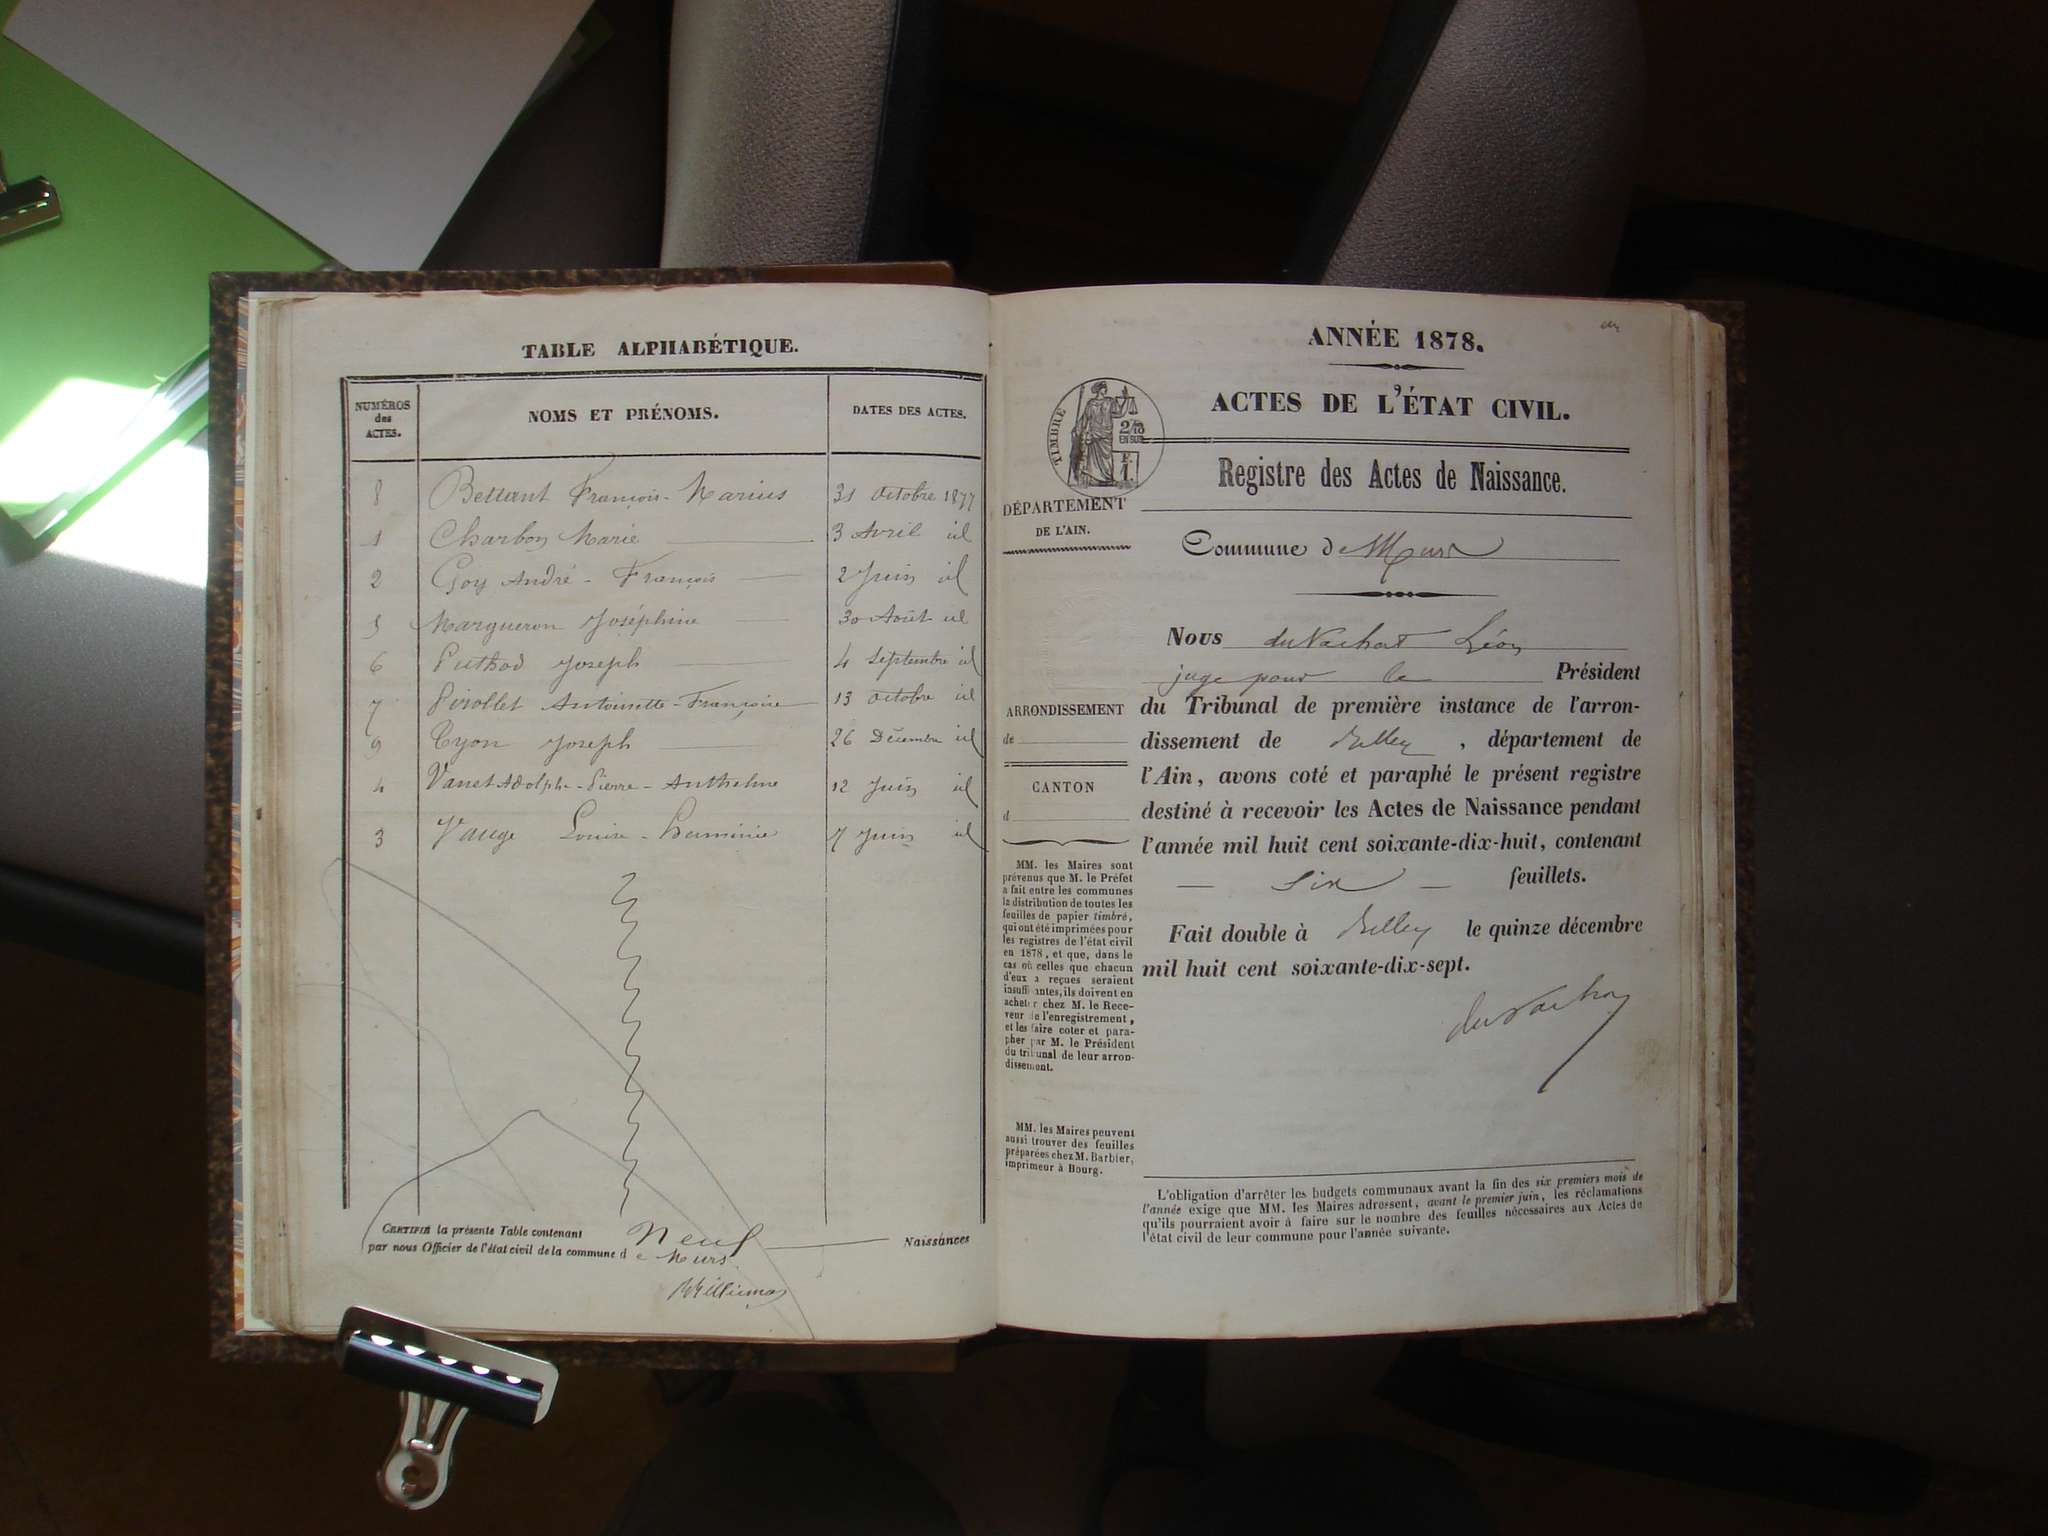 TABLE ALPHABÉTIQUE.
NUMÉROS des ACTES. NOMS ET PRÉNOMS. DATES DES ACTES.
8 Bettant François-Marius 31 octobre 1877
1 Charbon Marie 3 Avril id
2 Goy André-François 2 Juin id
5 Margueron Joséphine 30 Août id
6 Puthod Joseph 4 Septembre id
7 Pirollet Antoinette-Françoise 13 octobre id
9 Tyon Joseph 26 Décembre id
4 Vanet Adolphe-Pierre-Anthelme 12 Juin id
3 Vauge Louise-Herminie 7 Juin id
CERTIFIÉ la présente Table contenant Neuf Naissances
par nous Officier de l'état civil de la commune de Murs
ANNÉE 1878.
ACTES DE L'ÉTAT CIVIL.
TIMBRE
2/10
EN SUS
F.
1.
Registre des Actes de Naissance.
DÉPARTEMENT
DE L'AIN.
Commune de Murs
Nous du Vachat Léon
juge pour le Président
du Tribunal de première instance de l'arron-
dissement de Belley, département de
l'Ain, avons coté et paraphé le présent registre
destiné à recevoir les Actes de Naissance pendant
l'année mil huit cent soixante-dix-huit, contenant
six feuillets.
Fait double à Belley le quinze décembre
mil huit cent soixante-dix-sept.
du Vachat
ARRONDISSEMENT
de
CANTON
d
MM. les Maires sont
prévenus que M. le Préfet
a fait entre les communes
la distribution de toutes les
feuilles de papier timbré,
qui ont été imprimées pour
les registres de l'état civil
en 1878, et que, dans le
cas où celles que chacun
d'eux a reçues seraient
insuffisantes, ils doivent en
acheter chez M. le Rece-
veur de l'enregistrement,
et les faire coter et para-
pher par M. le Président
du tribunal de leur arron-
dissement.
MM. les Maires peuvent
aussi trouver des feuilles
préparées chez M. Barbier,
imprimeur à Bourg.
L'obligation d'arrêter les budgets communaux avant la fin des six premiers mois de
l'année exige que MM. les Maires adressent, avant le premier juin, les réclamations
qu'ils pourraient avoir à faire sur le nombre des feuilles nécessaires aux Actes de
l'état civil de leur commune pour l'année suivante.